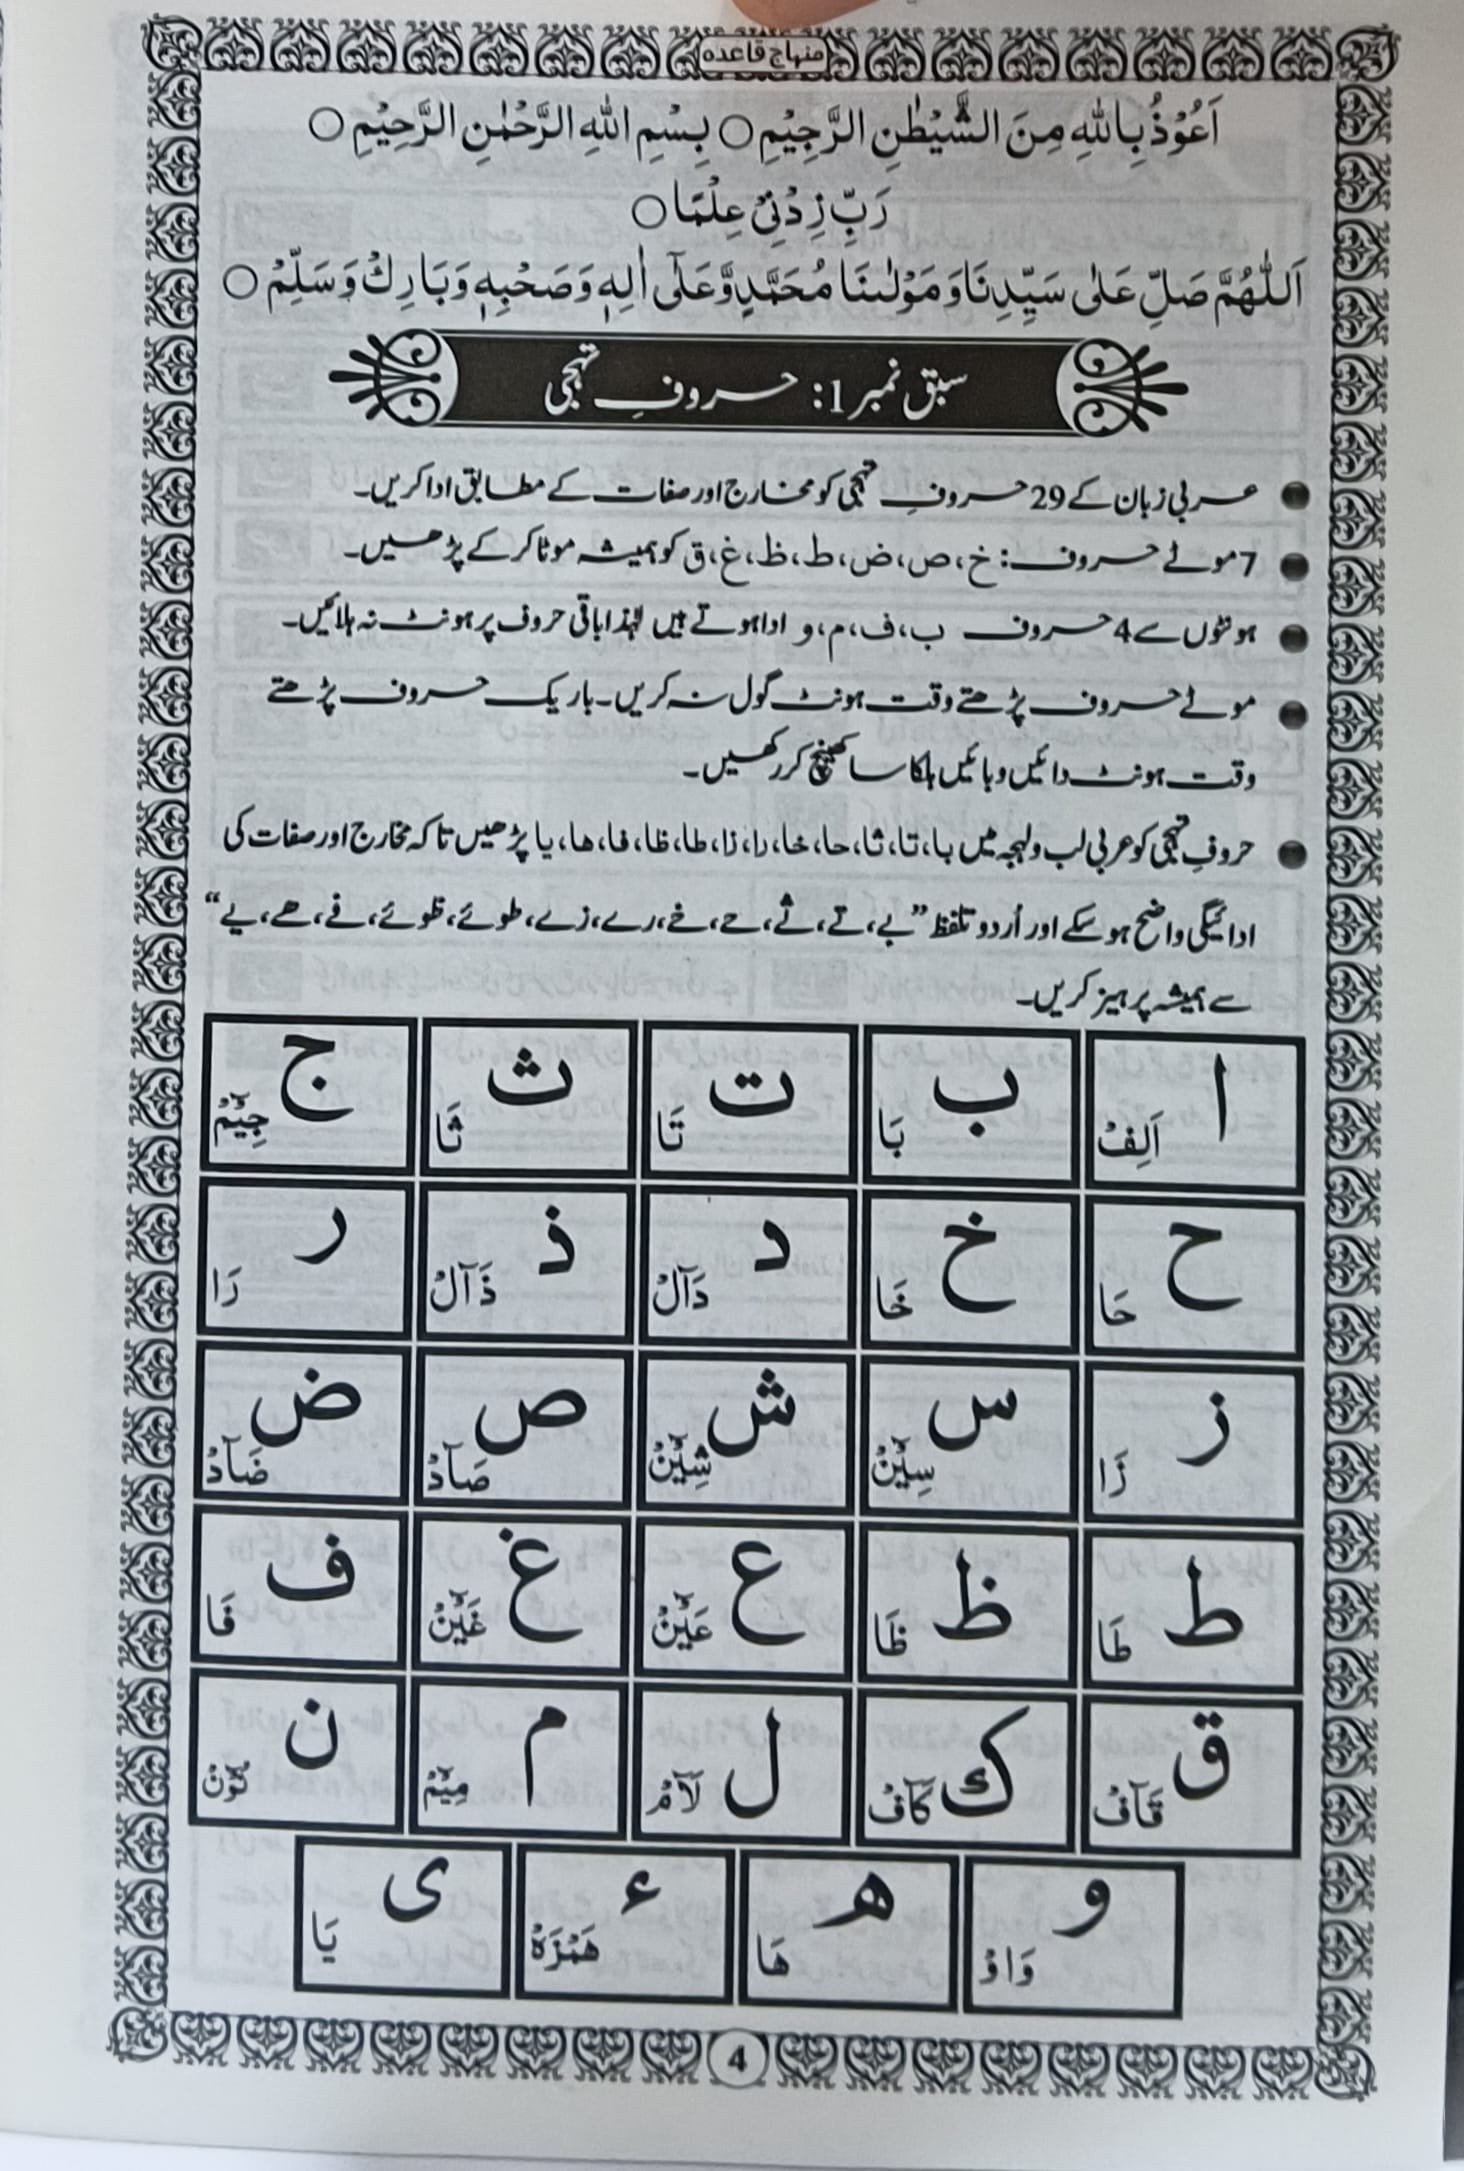 منہاج قاعدہ
اَعُوْذُ بِاللّٰهِ مِنَ الشَّيْطٰنِ الرَّجِيْمِ○ بِسْمِ اللّٰهِ الرَّحْمٰنِ الرَّحِيْمِ○
رَبِّ زِدْنِيْ عِلْمًا○
اَللّٰهُمَّ صَلِّ عَلٰى سَيِّدِنَا وَ مَوْلٰىنَا مُحَمَّدٍ وَّعَلٰٓى اٰلِهٖ وَ صَحْبِهٖ وَ بَارِكْ وَ سَلِّمْ○
سبق نمبر 1: حروفِ تہجی
● عربی زبان کے 29 حروفِ تہجی کو مخارج اور صفات کے مطابق ادا کریں۔
● 7 موٹے حروف: خ، ص، ض، ط، ظ، غ، ق کو ہمیشہ موٹا کر کے پڑھیں۔
● ہونٹوں سے 4 حروف ب، ف، م، و ادا ہوتے ہیں لہٰذا باقی حروف پر ہونٹ نہ ہلائیں۔
● موٹے حروف پڑھتے وقت ہونٹ گول نہ کریں۔ باریک حروف پڑھتے
وقت ہونٹ دائیں و بائیں ہلکا سا کھینچ کر رکھیں۔
● حروفِ تہجی کو عربی لب و لہجہ میں با، تا، ثا، حا، خا، را، زا، طا، ظا، فا، ھا، یا پڑھیں تاکہ مخارج اور صفات کی
ادائیگی واضح ہو سکے اور اُردو تلفظ ”بے، تے، ثے، حے، خے، رے، زے، طوئے، ظوئے، فے، ھے، یے“
سے ہمیشہ پرہیز کریں۔
ا اَلِفْ ب بَا ت تَا ث ثَا ج جِيْٓمْ
ح حَا خ خَا د دَآلْ ذ ذَآلْ ر رَا
ز زَا س سِيْٓنْ ش شِيْٓنْ ص صَآدْ ض ضَآدْ
ط طَا ظ ظَا ع عَيْٓنْ غ غَيْٓنْ ف فَا
ق قَآفْ ك كَآفْ ل لَآمْ م مِيْٓمْ ن نُوْٓنْ
و وَاوْ ھ ھَا ء ھَمْزَہْ ی يَا
4